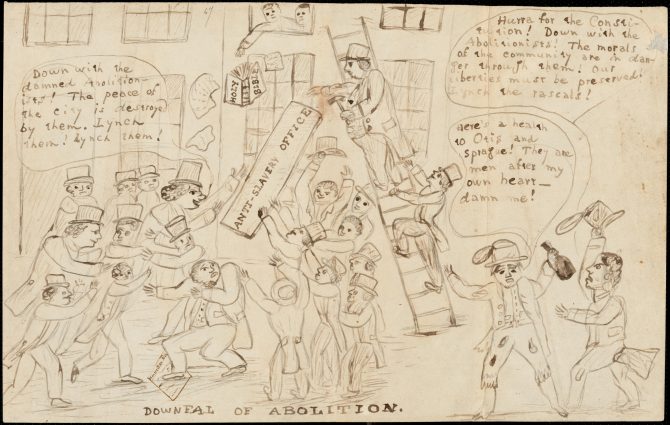 Down with the
damned Abolition-
ists! The peace of
the city is destroye
by them. Lynch
them! Lynch them!
Hurra for the Consti-
tution! Down with the
Abolitionists! The morals
of the community are in dan-
ger through them! Our
liberties must be preserved!
Lynch the rascals!
HOLY
BIBLE
ANTI-SLAVERY OFFICE
Here's a health
to Otis and
Sprague! They are
men after my
own heart—
damn me!
DOWNFAL OF ABOLITION.